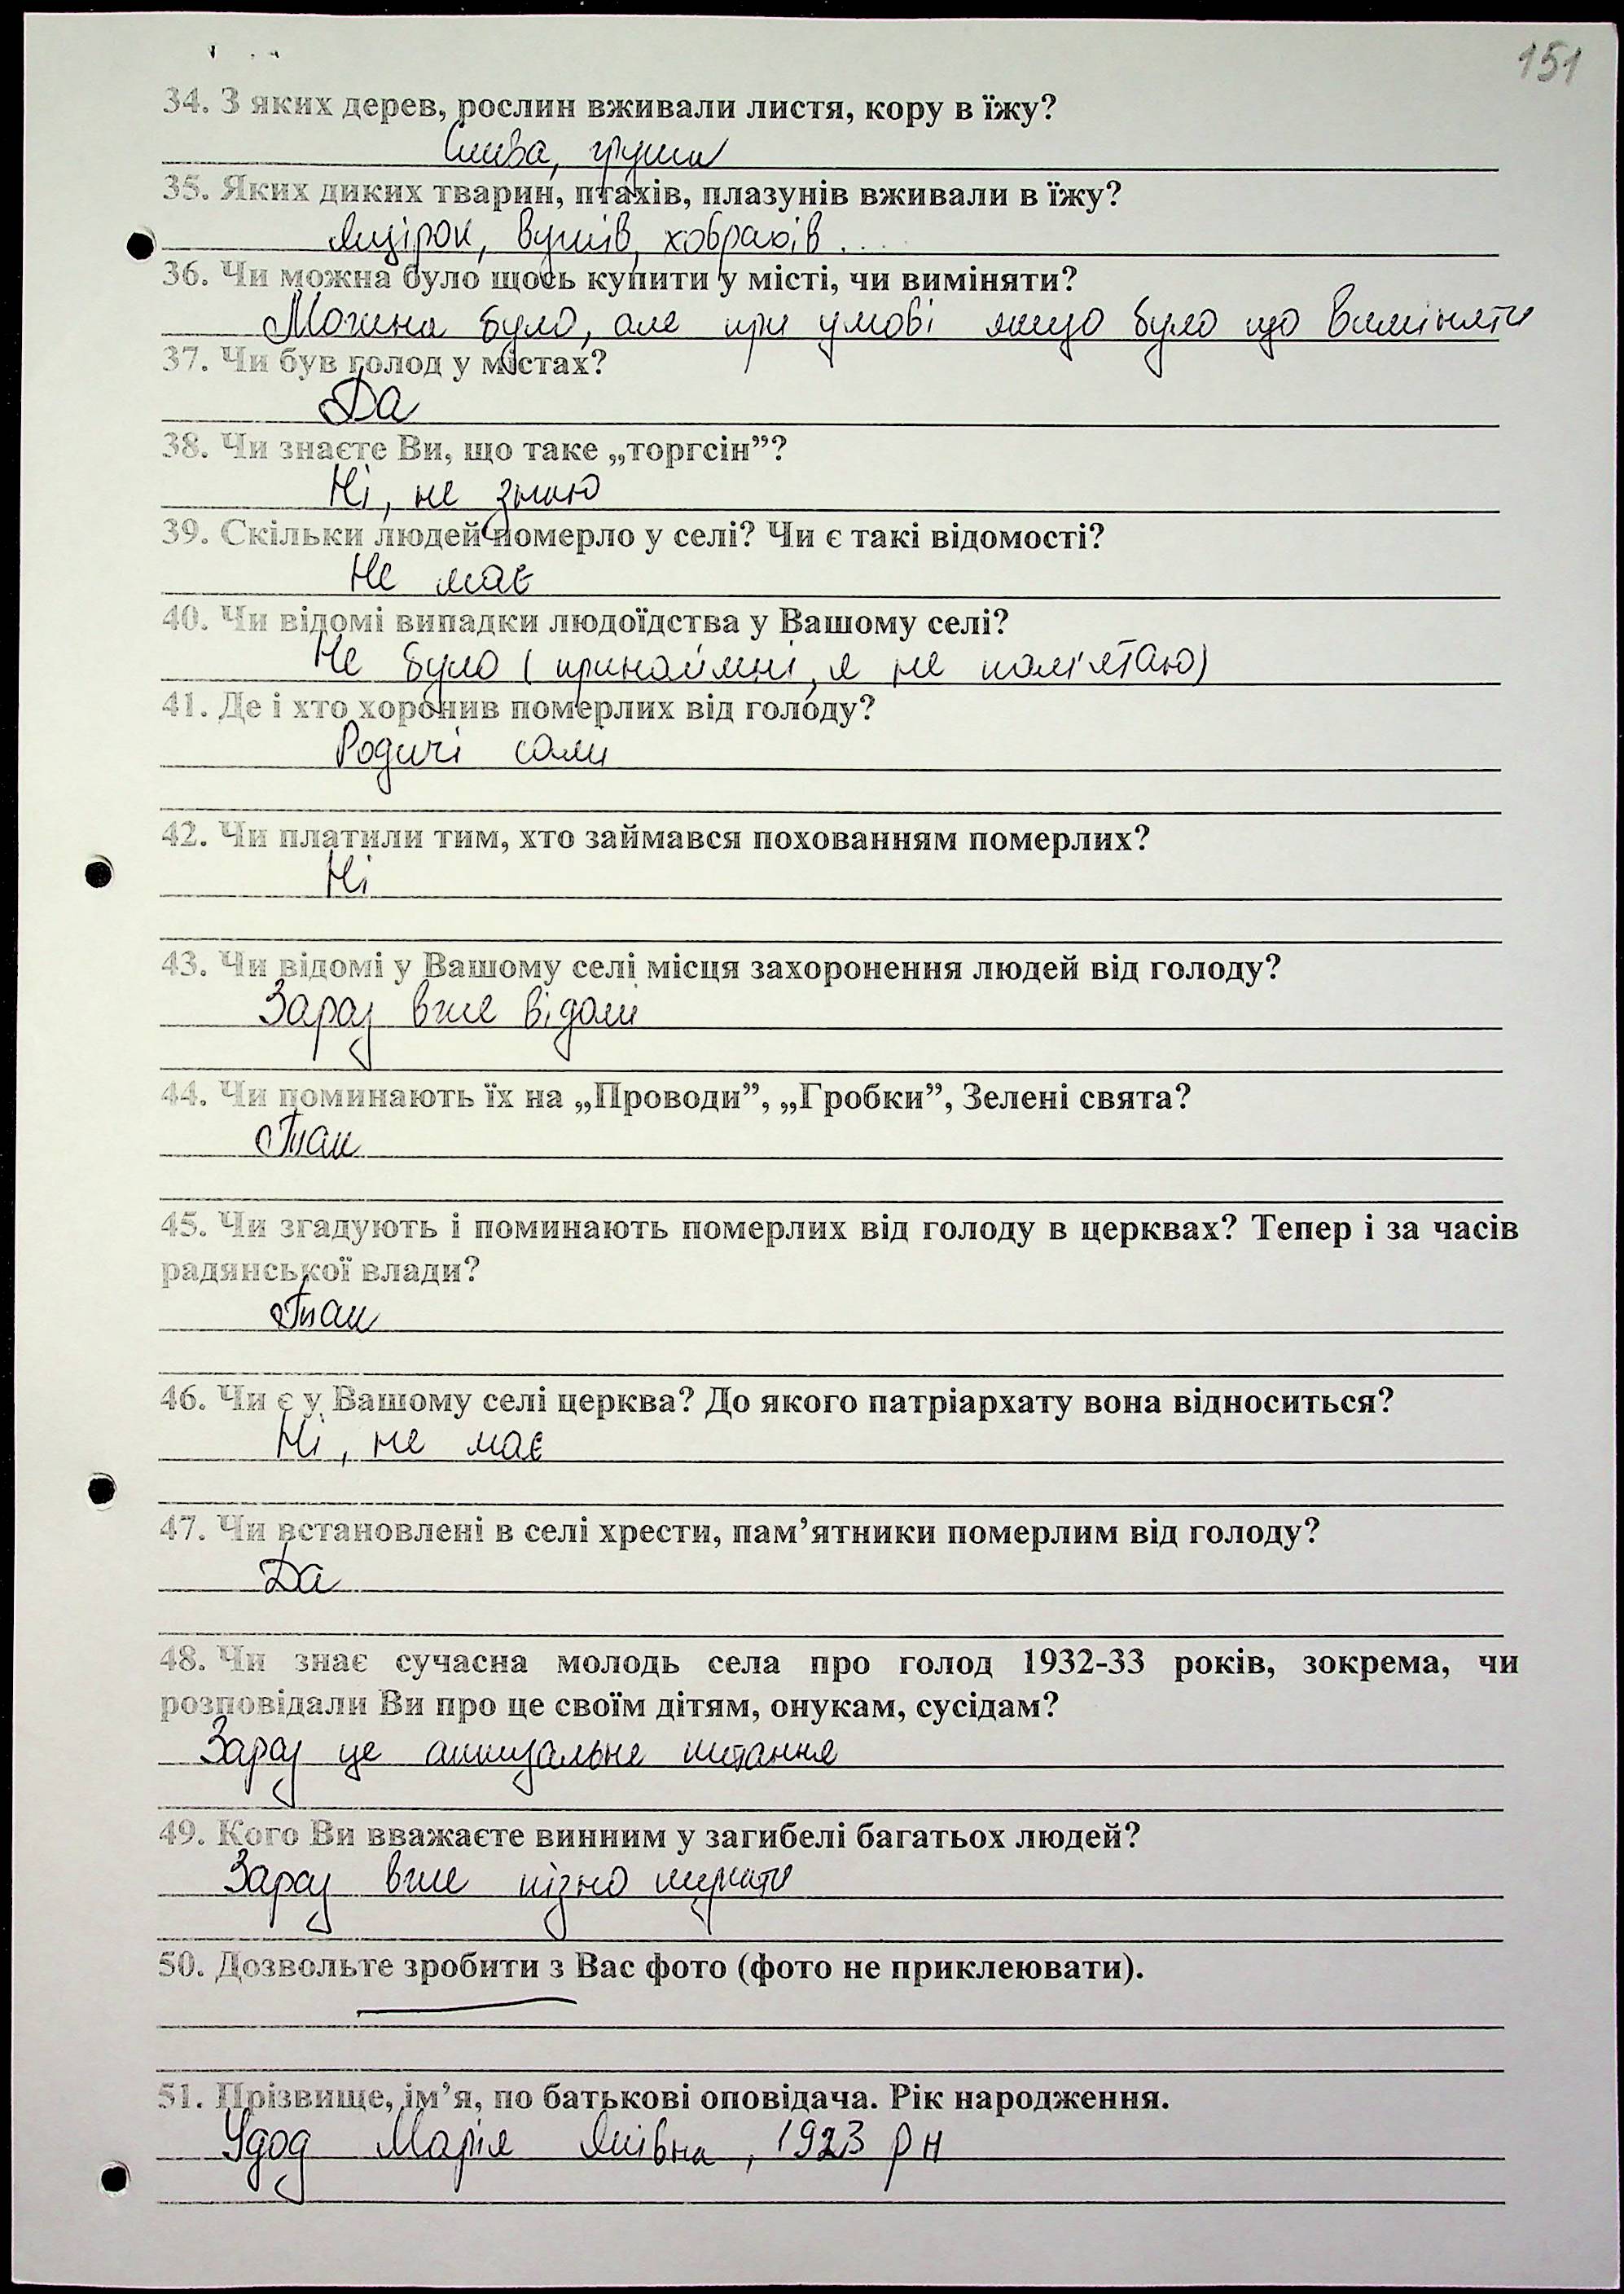 151
34. З яких дерев, рослин вживали листя, кору в їжу?
Слива, груша
35. Яких диких тварин, птахів, плазунів вживали в їжу?
Ящірок, вужів, ховрахів...
36. Чи можна було щось купити у місті, чи виміняти?
Можна було, але при умові якщо було що виміняти
37. Чи був голод у містах?
Да
38. Чи знаєте Ви, що таке „торгсін”?
Ні, не знаю
39. Скільки людей померло у селі? Чи є такі відомості?
Не має
40. Чи відомі випадки людоїдства у Вашому селі?
Не було (принаймні, я не пам'ятаю)
41. Де і хто хоронив померлих від голоду?
Родичі самі
42. Чи платили тим, хто займався похованням померлих?
Ні
43. Чи відомі у Вашому селі місця захоронення людей від голоду?
Зараз вже відомі
44. Чи поминають їх на „Проводи”, „Гробки”, Зелені свята?
Так
45. Чи згадують і поминають померлих від голоду в церквах? Тепер і за часів
радянської влади?
Так
46. Чи є у Вашому селі церква? До якого патріархату вона відноситься?
Ні, не має
47. Чи встановлені в селі хрести, пам’ятники померлим від голоду?
Да
48. Чи знає сучасна молодь села про голод 1932-33 років, зокрема, чи
розповідали Ви про це своїм дітям, онукам, сусідам?
Зараз це актуальне питання
49. Кого Ви вважаєте винним у загибелі багатьох людей?
Зараз вже пізно шукати
50. Дозвольте зробити з Вас фото (фото не приклеювати).
51. Прізвище, ім’я, по батькові оповідача. Рік народження.
Удод Марія Яківна, 1923 р н